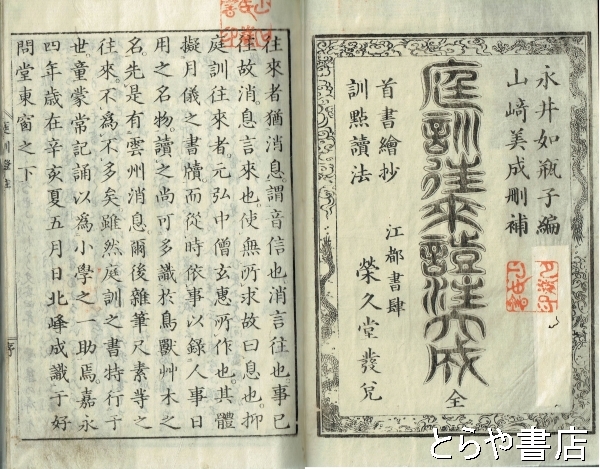 永井如瓶子編
山崎美成刪補
庭訓往來證注大成
全
首書繪抄
訓點讀法
江都書肆
榮久堂發兌
往來者猶消息謂音信也消言往也事已
往故消息言來也使無所求故曰息也抑
庭訓往來者元弘中僧玄惠所作也其體
擬月儀之書牘而從時依事以録人事日
用之名物讀之尚可多識於鳥獸艸木之
名先是有雲州消息爾後雜筆尺素等之
往來不為不多矣雖然庭訓之書特行于
世童蒙常記誦以為小學之一助焉嘉永
四年歳在辛亥夏五月日北峰成識于好
問堂東窗之下
序
とらや書店